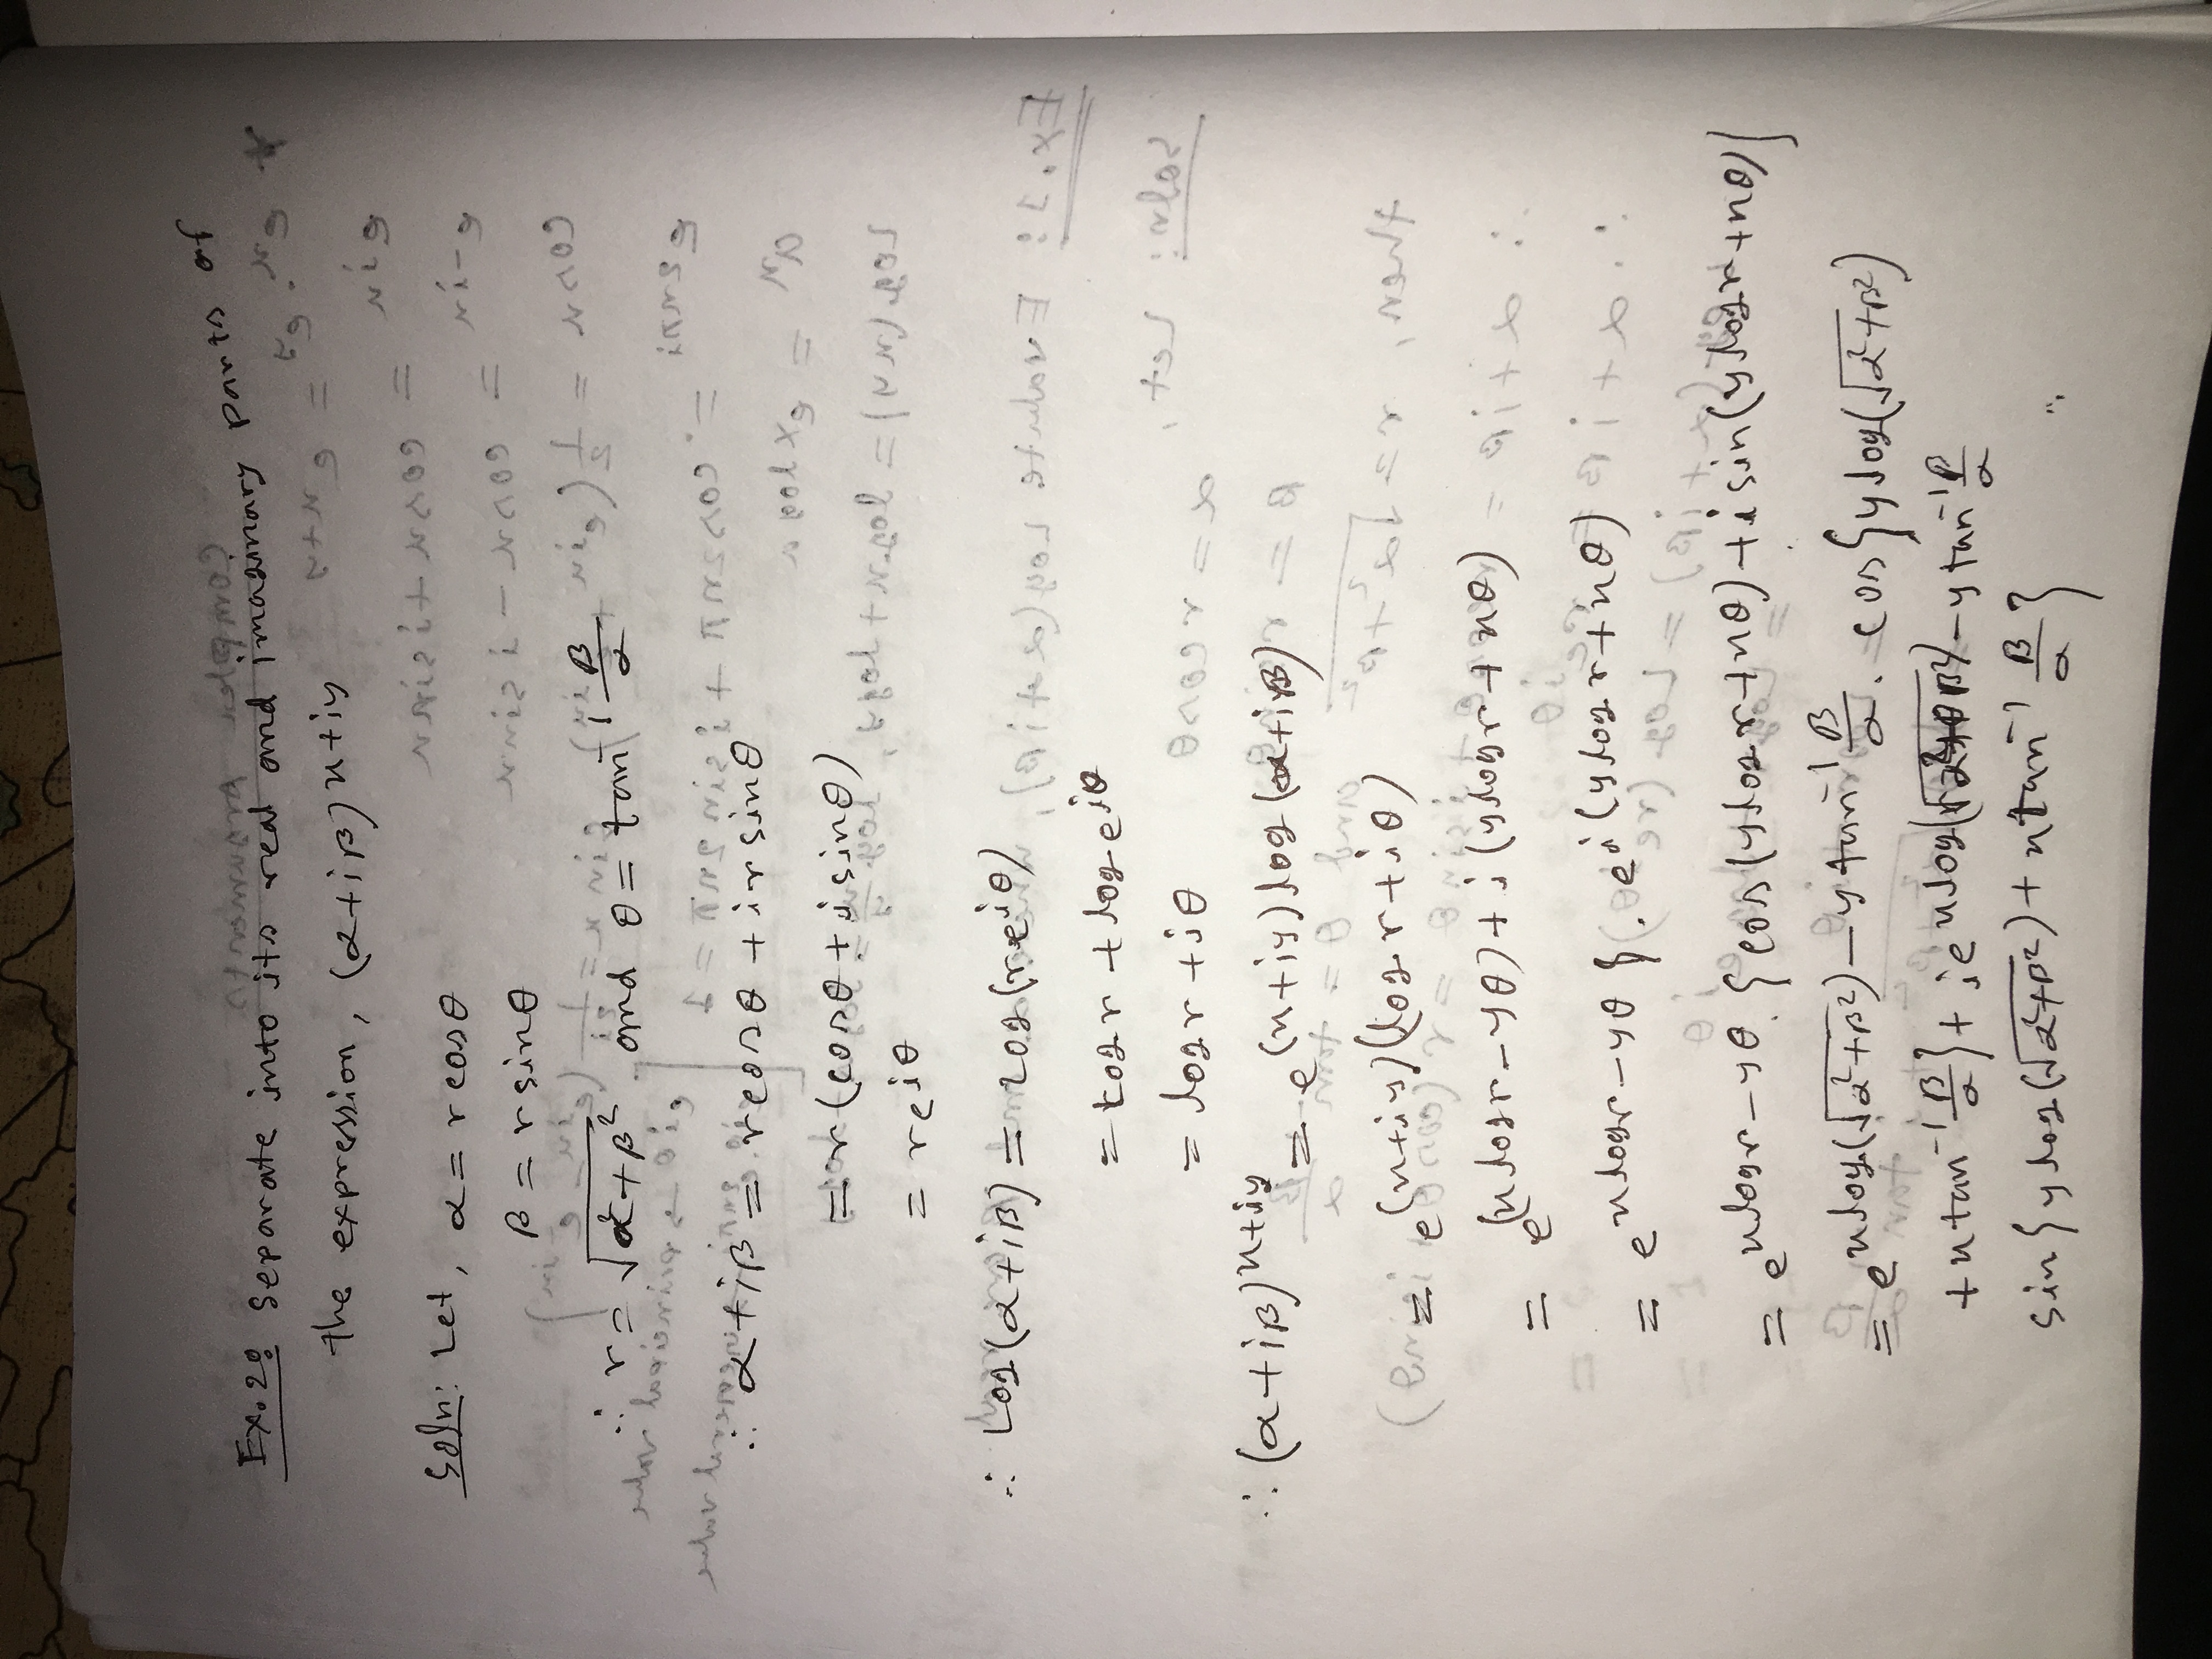 Ex.2: Separate into its real and imaginary parts of
the expression, (α+iβ)^x+iy
Soln: Let, α = r cosθ
β = r sinθ
∴ r = √α²+β² and θ = tan⁻¹ β/α
∴ α+iβ = r cosθ + ir sinθ
= r (cosθ + i sinθ)
= re^iθ
∴ Log(α+iβ) = Log(re^iθ)
= Log r + log e^iθ
= log r + iθ
∴ (α+iβ)^x+iy = e^(x+iy) log (α+iβ)
= e^(x+iy)(log r + iθ)
= e^(x log r − yθ) + i (y log r + xθ)
= e^x log r − yθ . e^i (y log r + xθ)
= e^x log r − yθ . {cos (y log r + xθ) + i sin (y log r + xθ)}
= e^x log (√α²+β²) − y tan⁻¹ β/α . cos {y log (√α²+β²)
+ x tan⁻¹ β/α} + ie^x log (√α²+β²) − y tan⁻¹ β/α
sin {y log (√α²+β²) + x tan⁻¹ β/α}